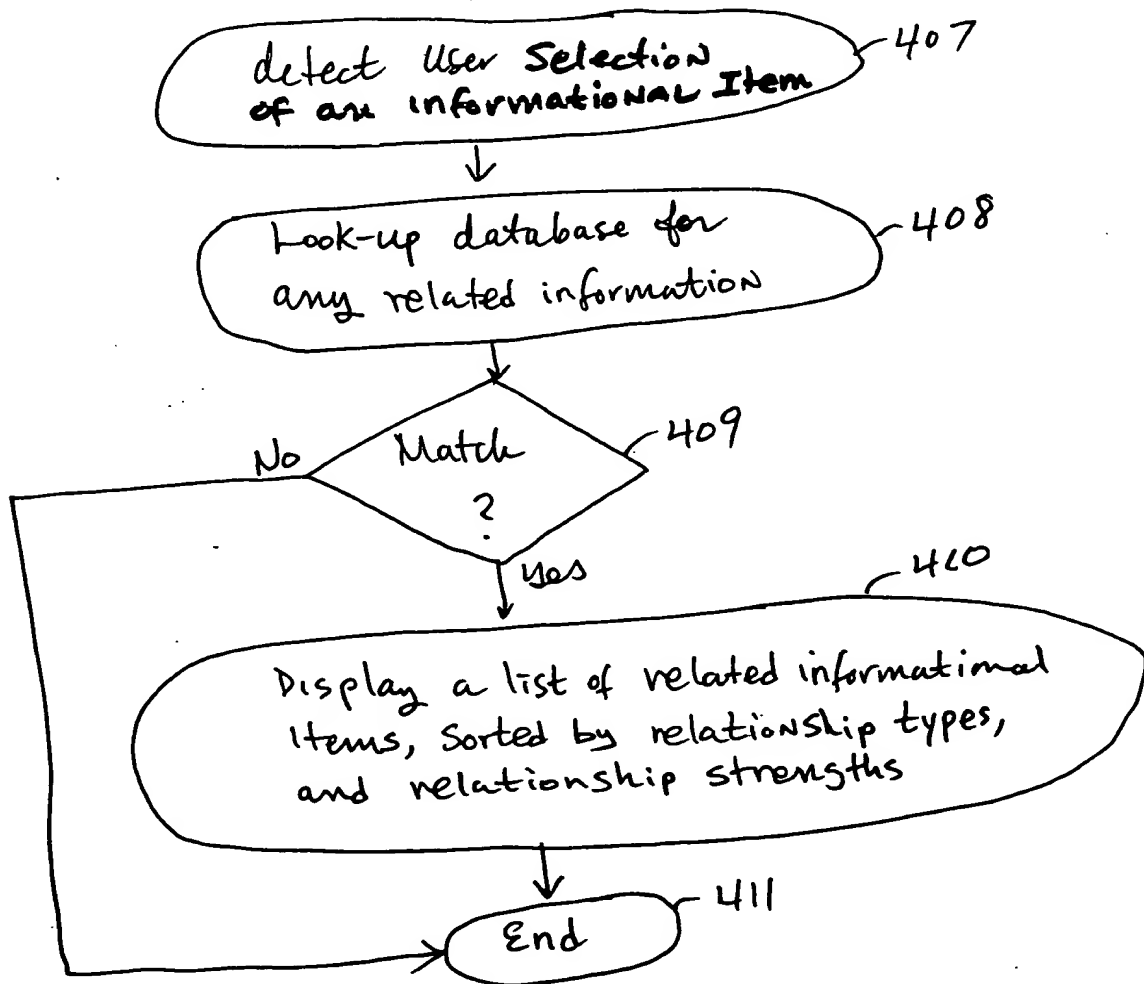 detect User Selection
of an informational Item
407
Look-up database for
any related information
408
Match
?
409
No
Yes
410
Display a list of related informational
Items, Sorted by relationship types,
and relationship strengths
End
411